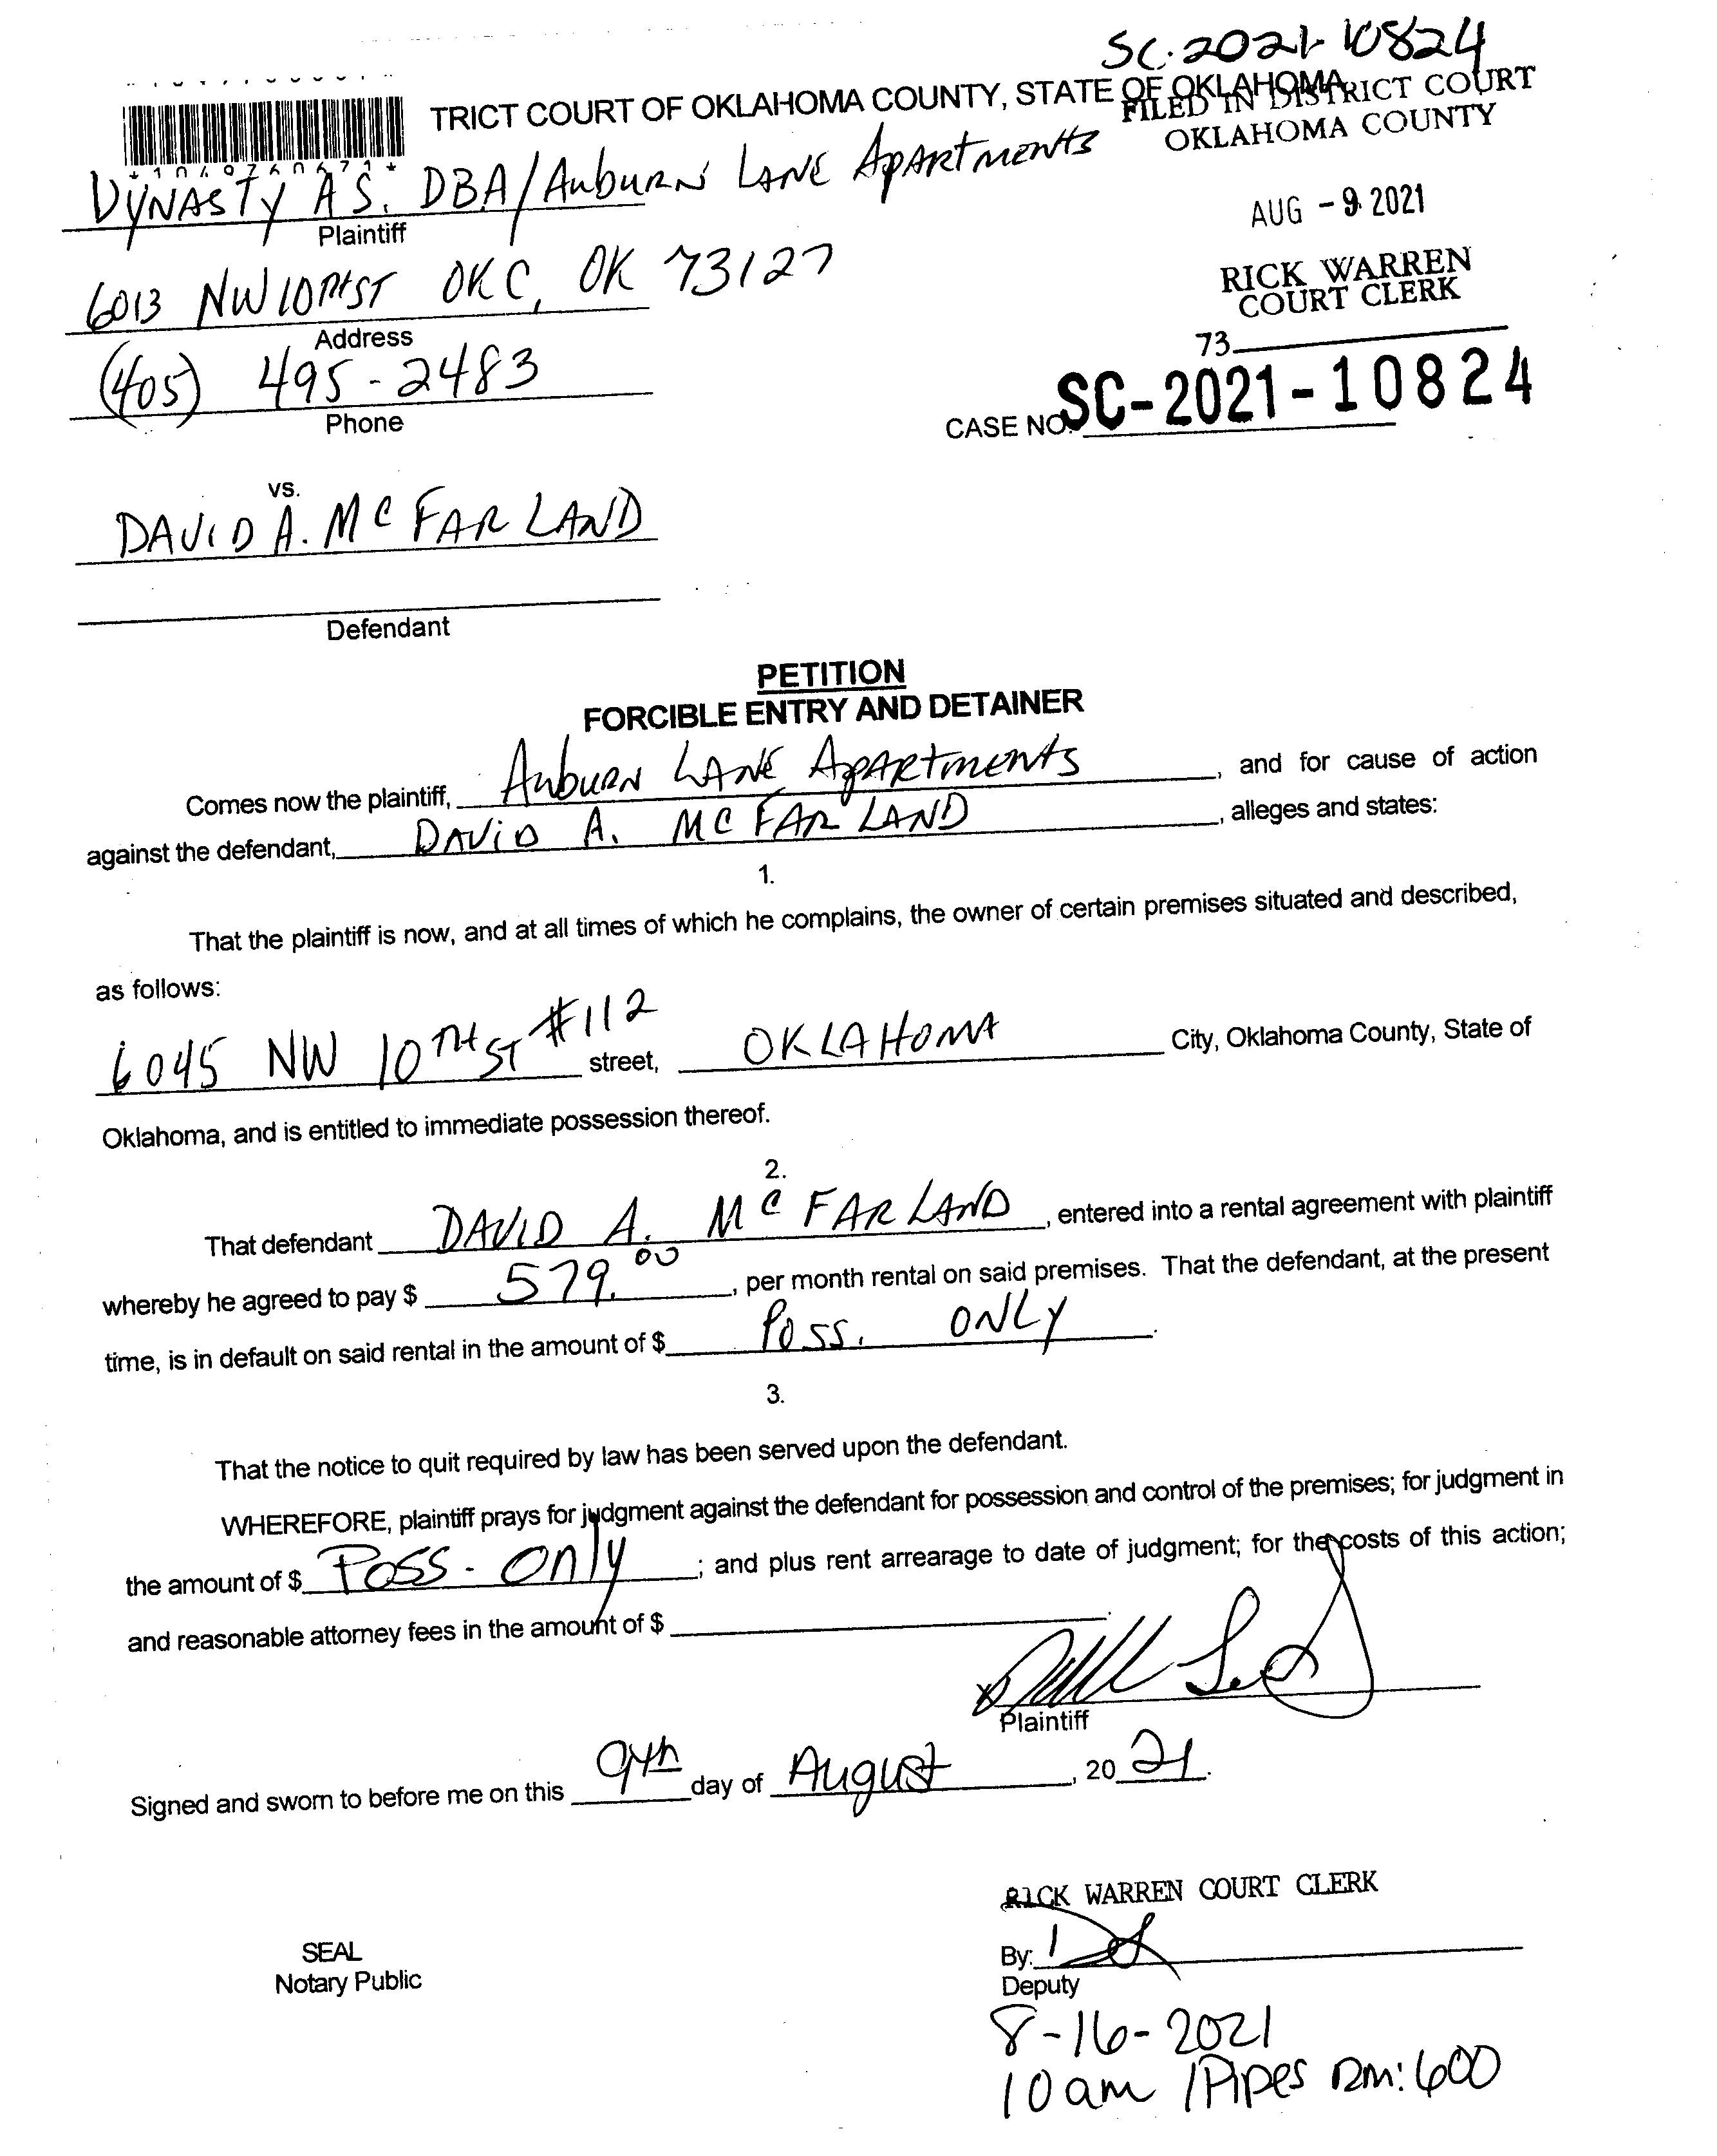 SC-2021-10824
TRICT COURT OF OKLAHOMA COUNTY, STATE OF OKLAHOMA
FILED IN DISTRICT COURT
OKLAHOMA COUNTY
DYNASTY AS. DBA/Auburn Lane Apartments
Plaintiff
AUG - 9 2021
6013 NW 10TH ST OKC, OK 73127
Address
RICK WARREN
COURT CLERK
73
(405) 495-2483
Phone
CASE NO. SC-2021-10824
vs.
DAVID A. McFARLAND
Defendant
PETITION
FORCIBLE ENTRY AND DETAINER
Comes now the plaintiff, Auburn Lane Apartments, and for cause of action
against the defendant, DAVID A. McFARLAND, alleges and states:
1.
That the plaintiff is now, and at all times of which he complains, the owner of certain premises situated and described,
as follows:
6045 NW 10TH ST #112 street, OKLAHOMA City, Oklahoma County, State of
Oklahoma, and is entitled to immediate possession thereof.
2.
That defendant DAVID A. McFARLAND, entered into a rental agreement with plaintiff
whereby he agreed to pay $ 579.00, per month rental on said premises. That the defendant, at the present
time, is in default on said rental in the amount of $ Poss. ONLY.
3.
That the notice to quit required by law has been served upon the defendant.
WHEREFORE, plaintiff prays for judgment against the defendant for possession and control of the premises; for judgment in
the amount of $ Poss - only; and plus rent arrearage to date of judgment; for the costs of this action;
and reasonable attorney fees in the amount of $
Plaintiff
Signed and sworn to before me on this 9th day of August, 2021.
RICK WARREN COURT CLERK
SEAL
Notary Public
By:
Deputy
8-16-2021
10am /Pipes Rm: 600